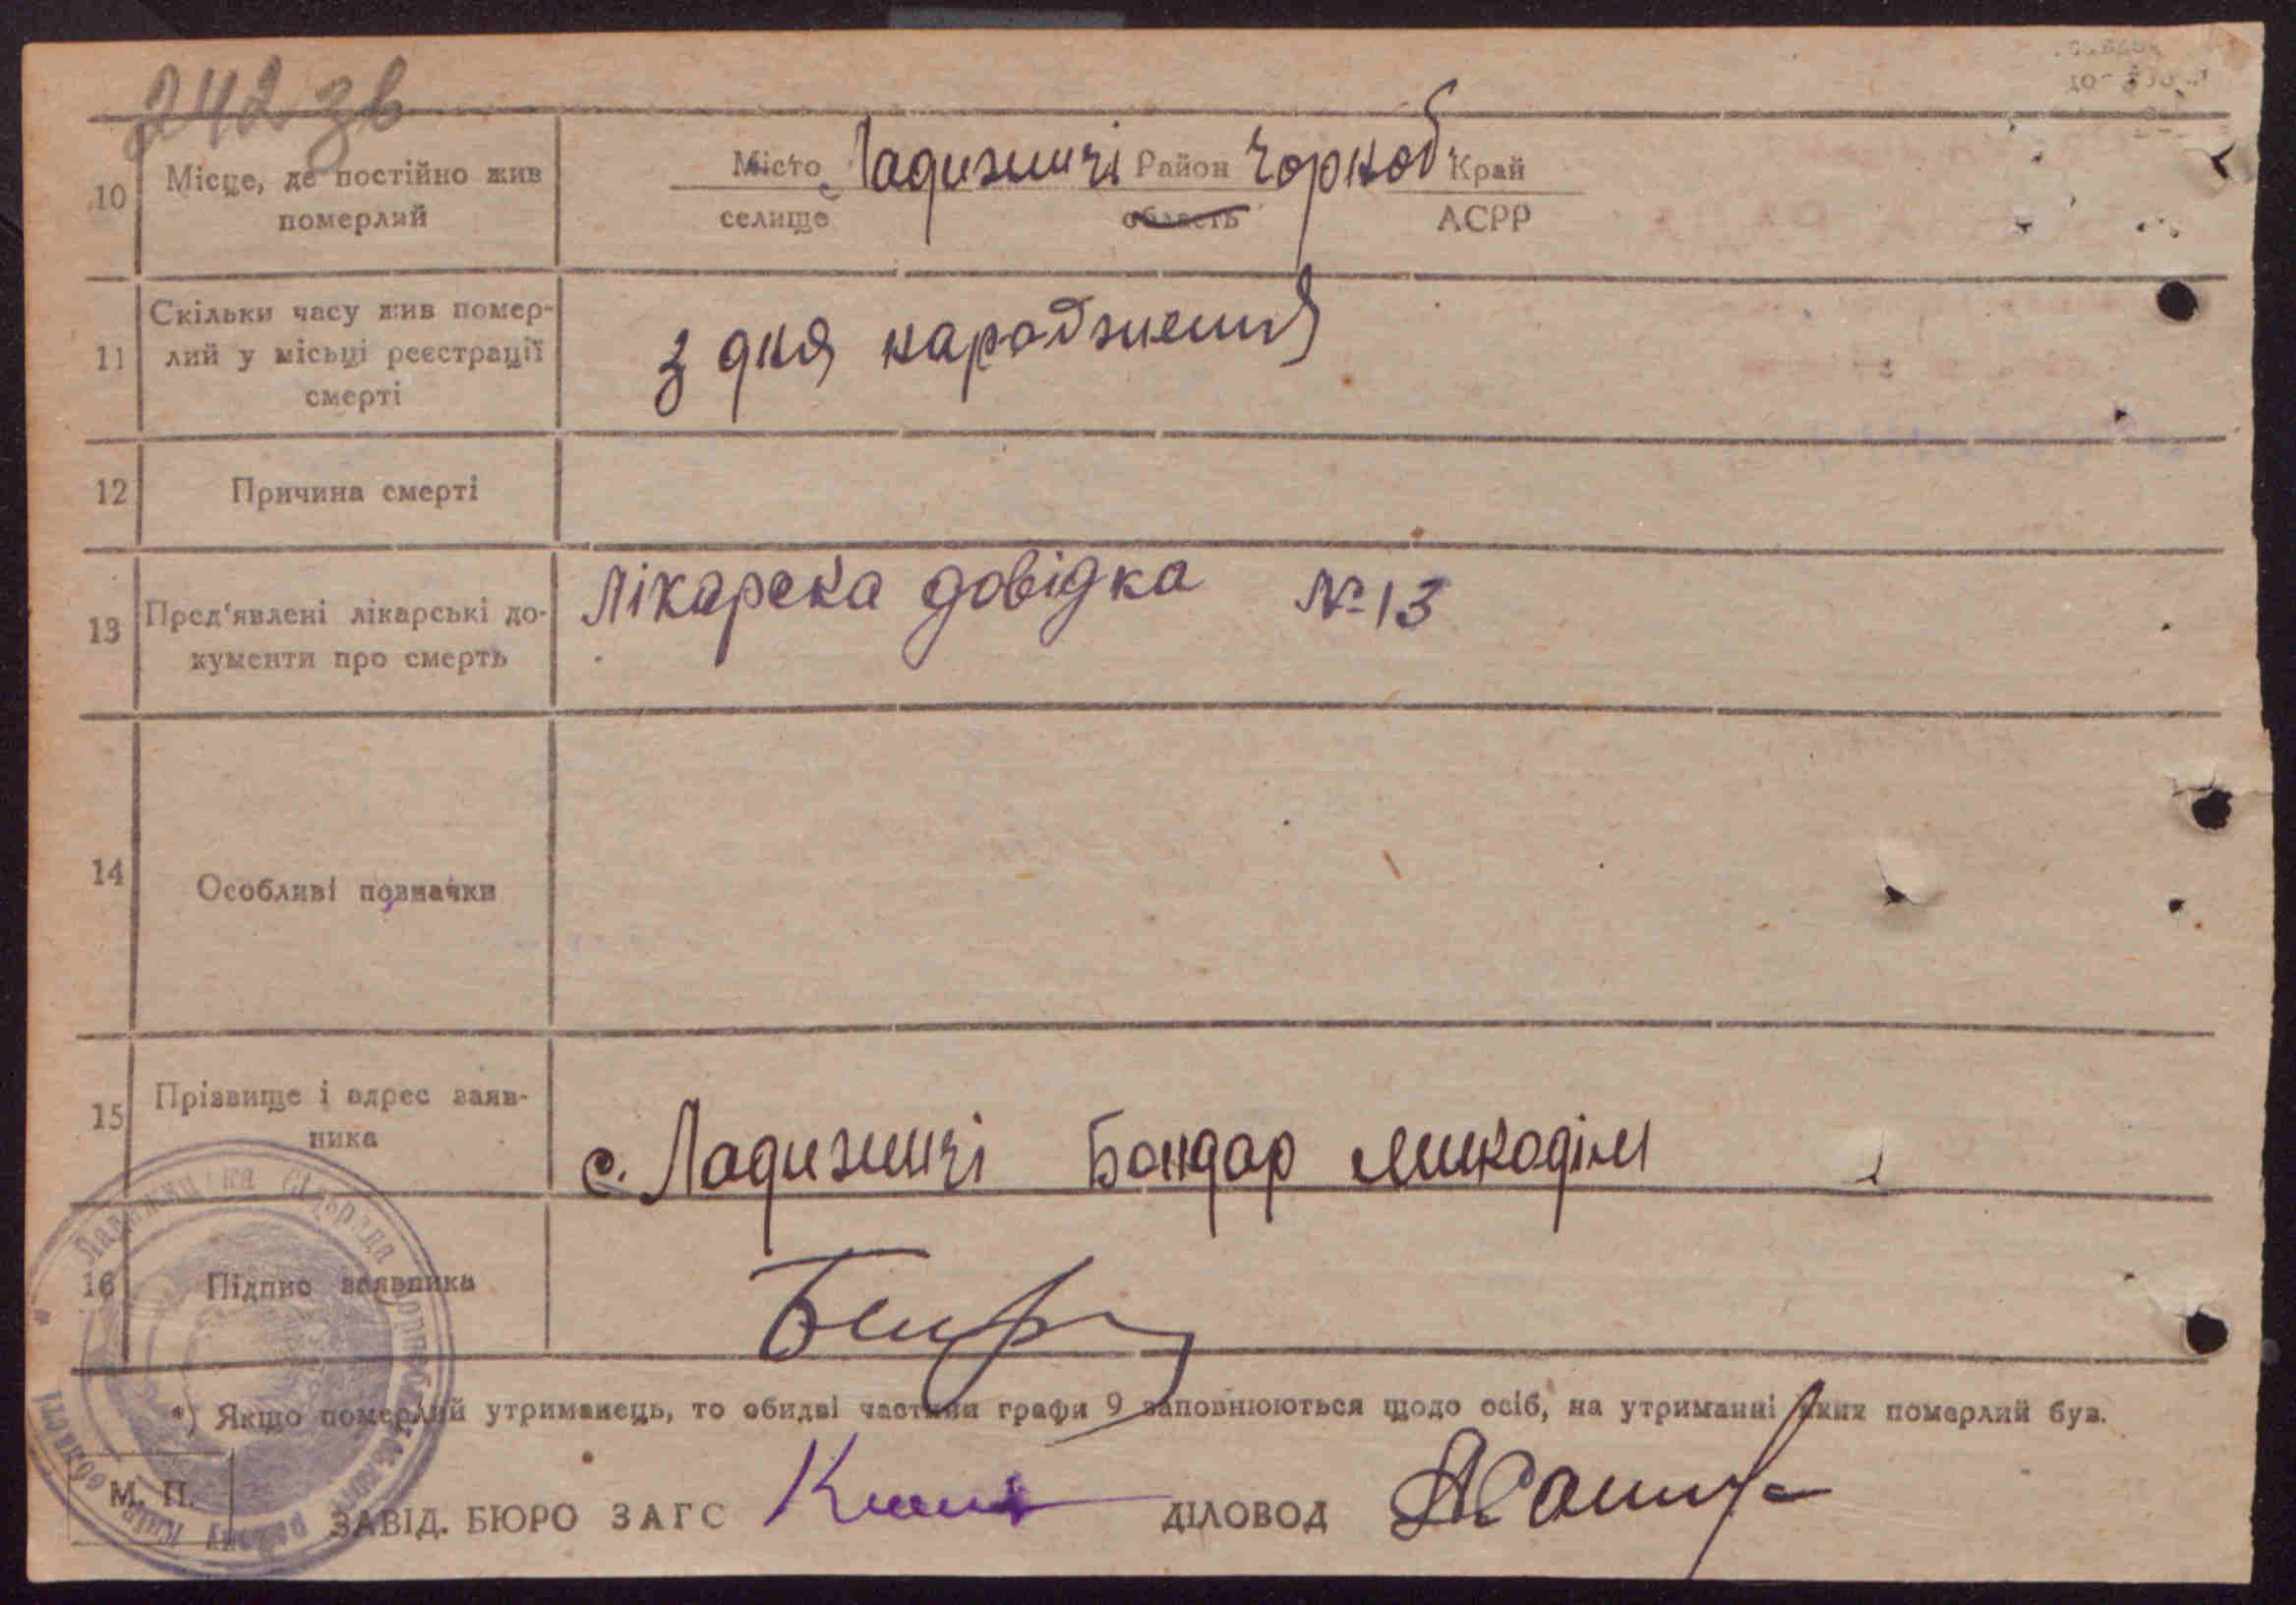 242 зв
10 Місце, де постійно жив померлий
Місто селище Ладижичі Район область Чорноб Край АСРР
11 Скільки часу жив померлий у місьці реєстрації смерті
з дня народження
12 Причина смерті
13 Пред'явлені лікарські документи про смерть
Лікарска довідка № 13
14 Особливі позначки
15 Прізвище і адрес заявника
с. Ладижичі Бондар Микодім
16 Підпис заявника
*) Якщо померлий утриманець, то обидві частини графи 9 заповнюються щодо осіб, на утриманні яких померлий був.
М. П. ЗАВІД. БЮРО ЗАГС ДІЛОВОД